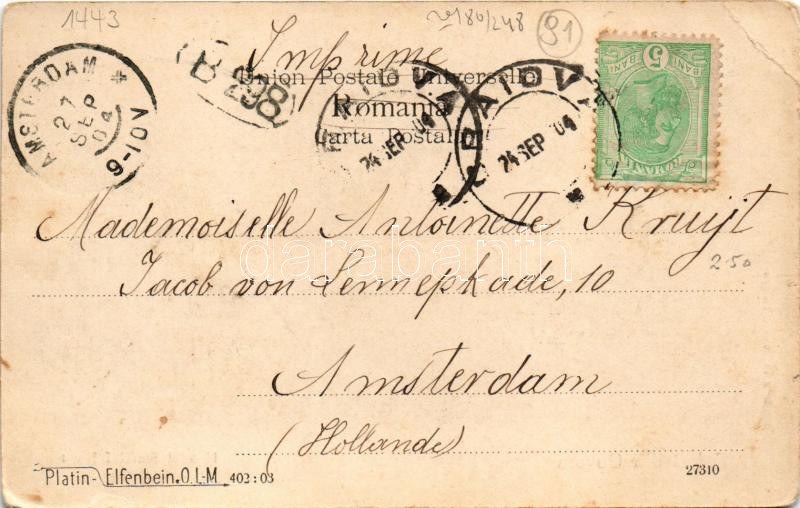 1443
91
Imprime
Union Postale Universelle
Romania
Carta Postala
AMSTERDAM
27 SEP 04
6-10V
B 298
CRAIOVA
24 SEP 04
CRAIOVA
24 SEP 04
5
BANI BANI
ROMANIA
Mademoiselle Antoinette Kruijt
Jacob von Lennepkade, 10
2.50
Amsterdam
(Hollande)
darabanth
Platin-Elfenbein.O.I.-M 402:03
27310